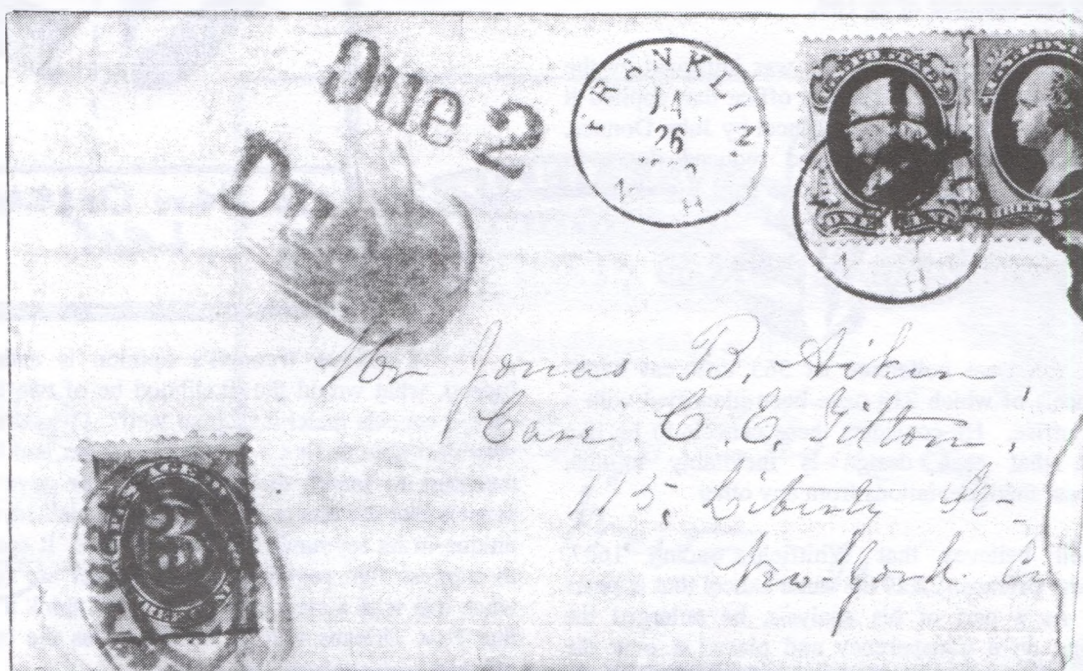 Due 2
Du
FRANKLIN
26
N H
N H
Mr Jonas B. Aikin
Care C. E. Tilton.
115, Liberty St
New York
3